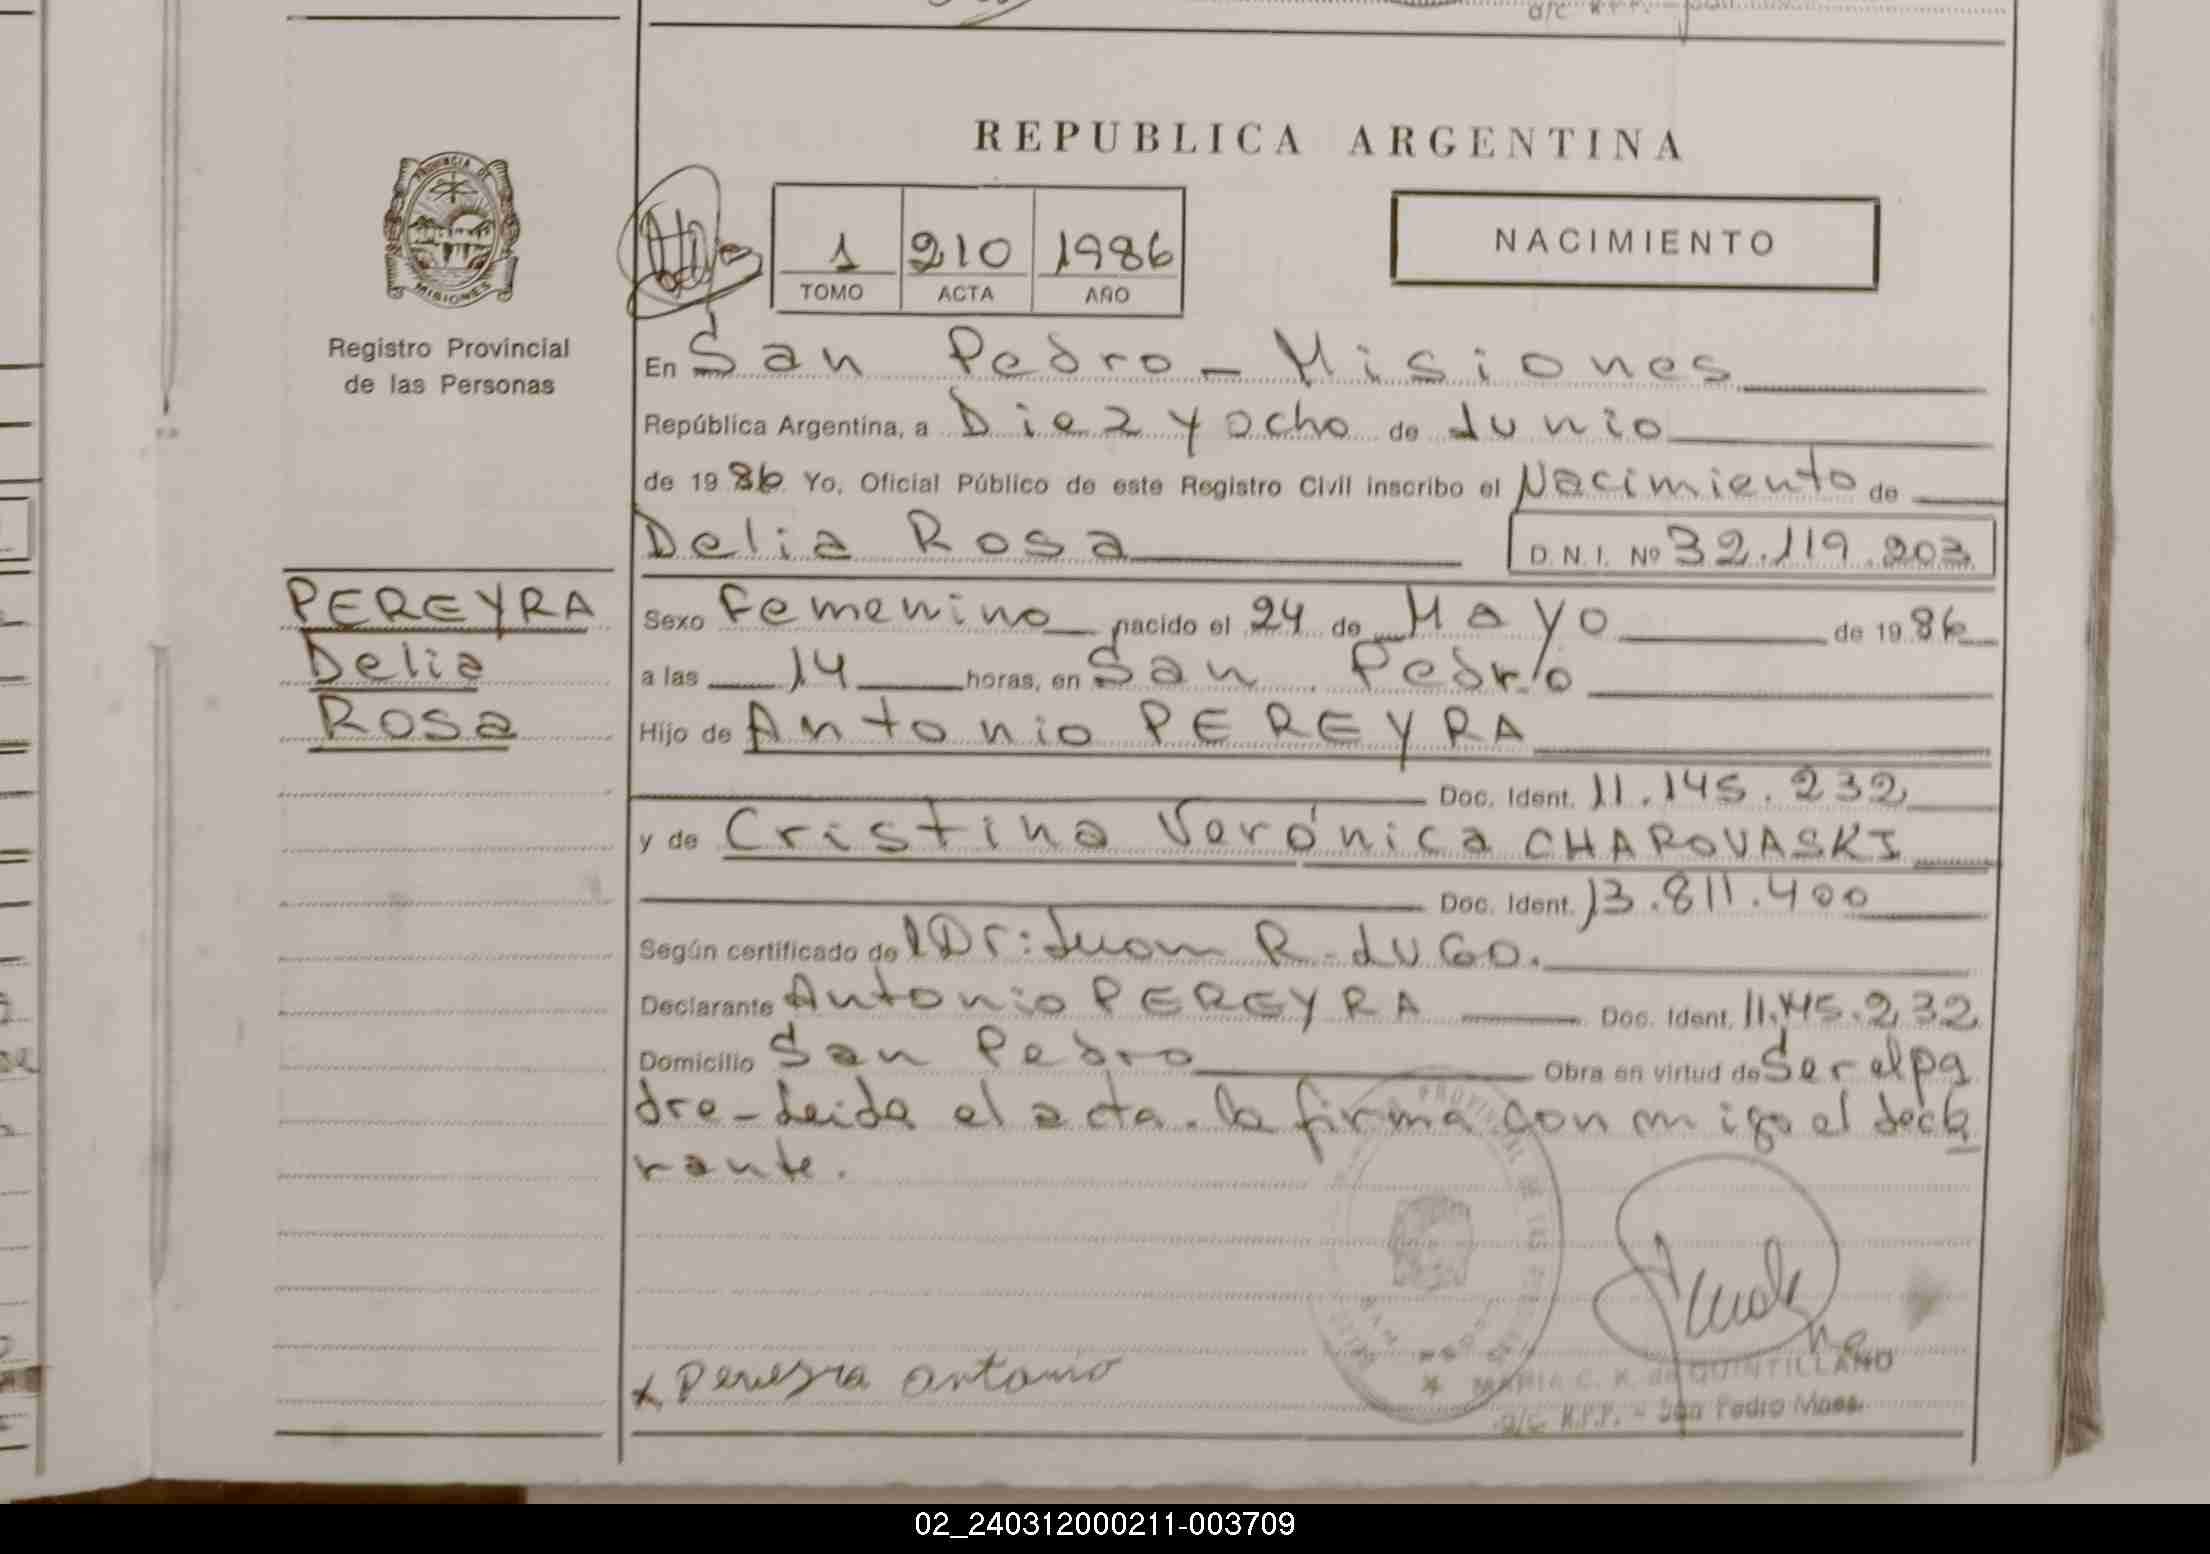 a/c R.P.P. -
REPUBLICA ARGENTINA
PROVINCIA DE
MISIONES
Registro Provincial
de las Personas
1 210 1986
TOMO ACTA AÑO
NACIMIENTO
En San Pedro - Misiones
República Argentina, a Diez y ocho de Junio
de 1986 Yo, Oficial Público de este Registro Civil inscribo el Nacimiento de
Delia Rosa D.N.I. Nº 32.119.203
PEREYRA
Delia
Rosa
Sexo Femenino nacido el 24 de Mayo de 1986
a las 14 horas, en San Pedro
Hijo de Antonio PEREYRA
Doc. Ident. 11.145.232
y de Cristina Verónica CHAROVASKI
Doc. Ident. 13.811.400
Según certificado del Dr: Juan R. LUGO.
Declarante Antonio PEREYRA Doc. Ident. 11.145.232
Domicilio San Pedro Obra en virtud de Ser el pa
dre - Leida el acta. la firma con migo el decla
rante.
x Pereyra antonio
MARIA C. K. de QUINTILLANO
a/c R.P.P. - San Pedro Mnes.
02_240312000211-003709